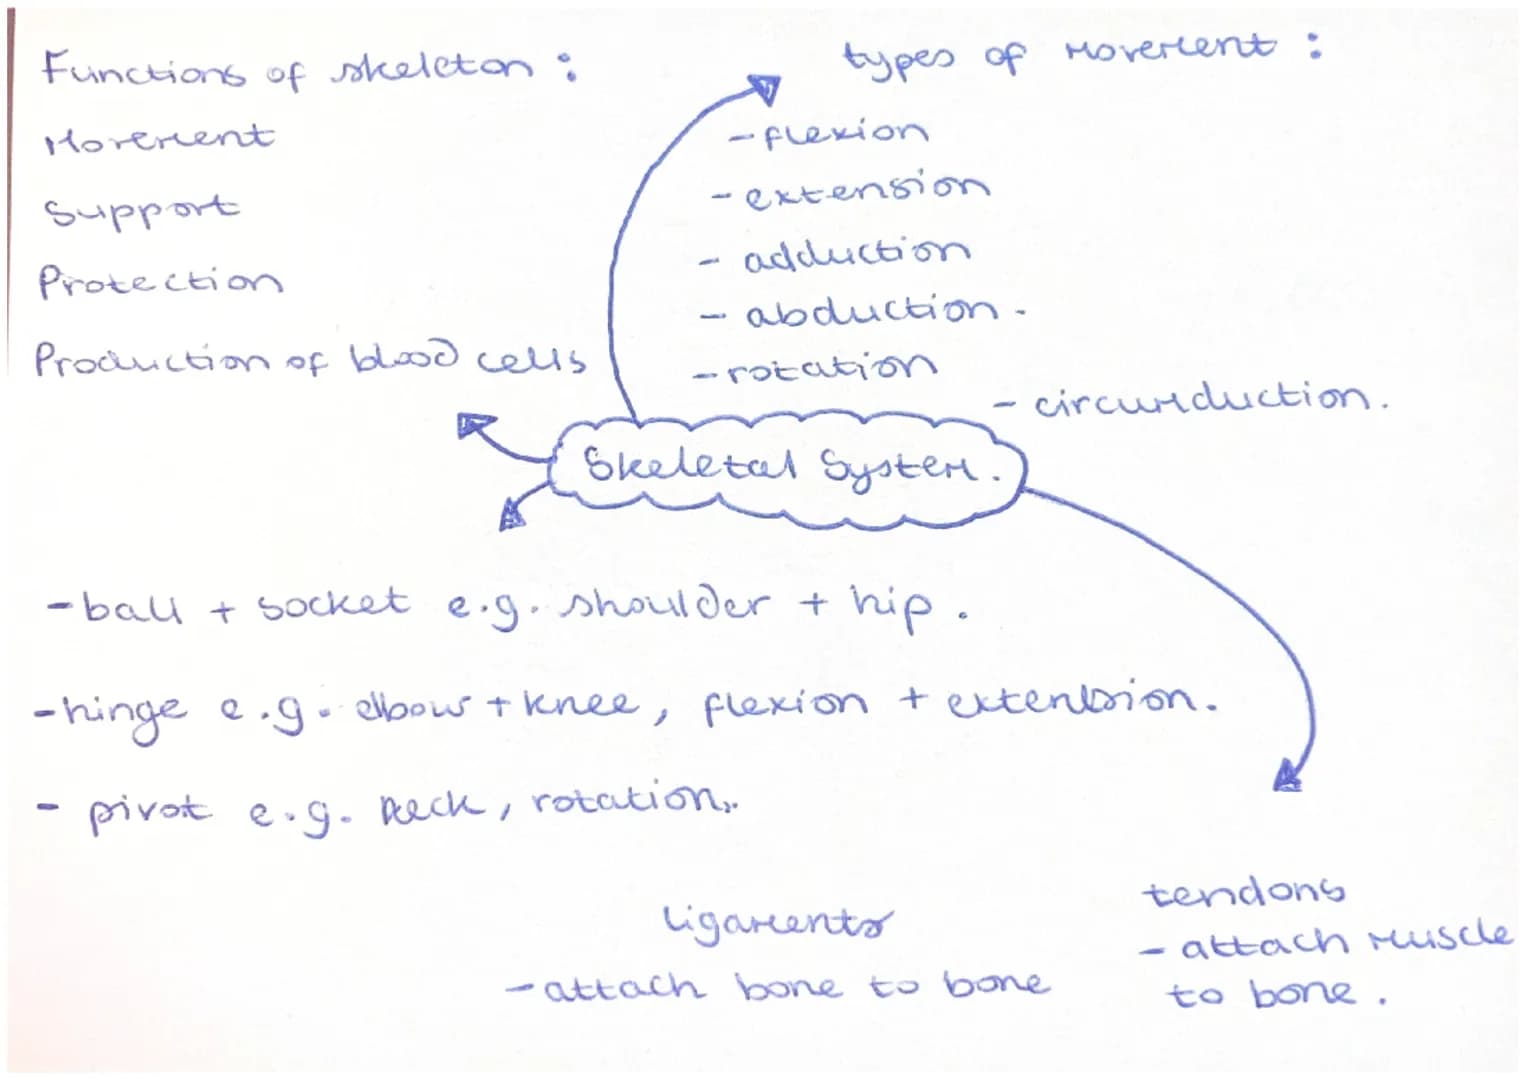 Functions of skeleton :
Movement
Support
Protection
Production of blood cells
types of movement :
- flexion
- extension
- adduction
- abduction.
- rotation
- circumduction.
Skeletal System.
- ball + socket e.g. shoulder + hip.
- hinge e.g. elbow + knee, flexion + extension.
- pivot e.g. neck, rotation.
ligaments
- attach bone to bone
tendons
- attach muscle
to bone.